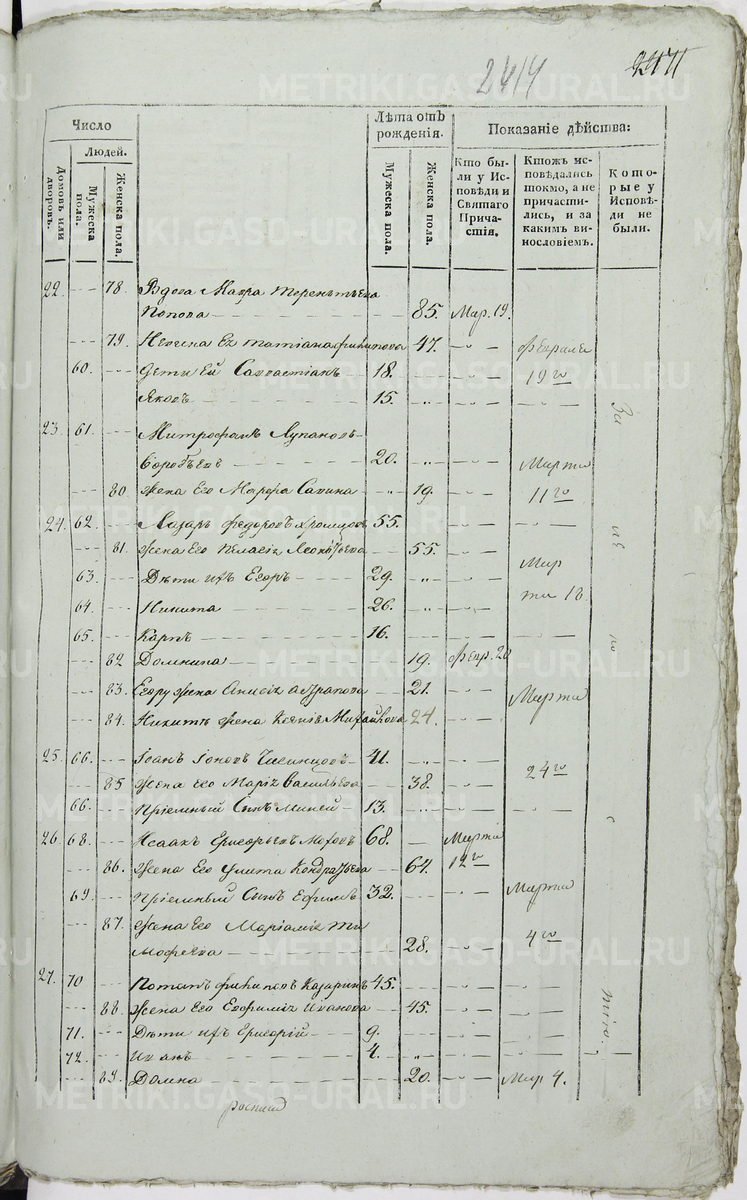 2414 2471
Число
Людей.
Домовъ или дворовъ.
Мужеска пола.
Женска пола.
Лѣта отъ рожденія.
Мужеска пола.
Женска пола.
Показаніе дѣйства:
Кто бы-
ли у Ис-
повѣди и
Святаго
Прича-
стія.
Ктожъ ис-
повѣдались
токмо, а не
причасти-
лись, и за
какимъ ви-
нословіемъ.
Кото-
рые у
Исповѣ-
ди не
были.
22. 78. Вдова Мавра Терентьева
Попова 85. Мар. 19.
79. Невѣстка Ея Татіана Филипова 47. Февраля
60. Дети Ей Савастіанъ 18. 19го
Яковъ 15.
23. 61. Митрофанъ Лупановъ
Воробьевъ 20. Марта
80. Жена Его Марфа Савина 19. 11го
24. 62. Лазарь Федоровъ Хромцовъ 55.
81. Жена Его Пелагія Леонтьева 55. Мар
63. Дѣти ихъ Егоръ 29. та 18.
64. Никита 26.
65. Карпъ 16.
82. Домнина 19. Февр. 20
83. Егору Жена Анисія 21. Марта
84. Никитѣ Жена Ксенія Михайлова 24.
25. 66. Іоанъ Іоновъ 41. 24го
85. Жена Его Марія Васильева 38.
66. Пріемный Сынъ Миней 13.
26. 68. Исаакъ Григорьевъ Моховъ 68. Марта
86. Жена Его Улита Кондратьева 64. 12го
69. Пріемный Сынъ Ефимъ 32. Марта
87. Жена Его Маріамія Ти
мофеева 28. 4го
27. 70 Потапъ Филиповъ Казаринъ 45.
88. Жена Его Евфимія Иванова 45.
71. Дѣти ихъ Григорій 9.
72. Иванъ 4.
89. Домна 20. Мар 4.